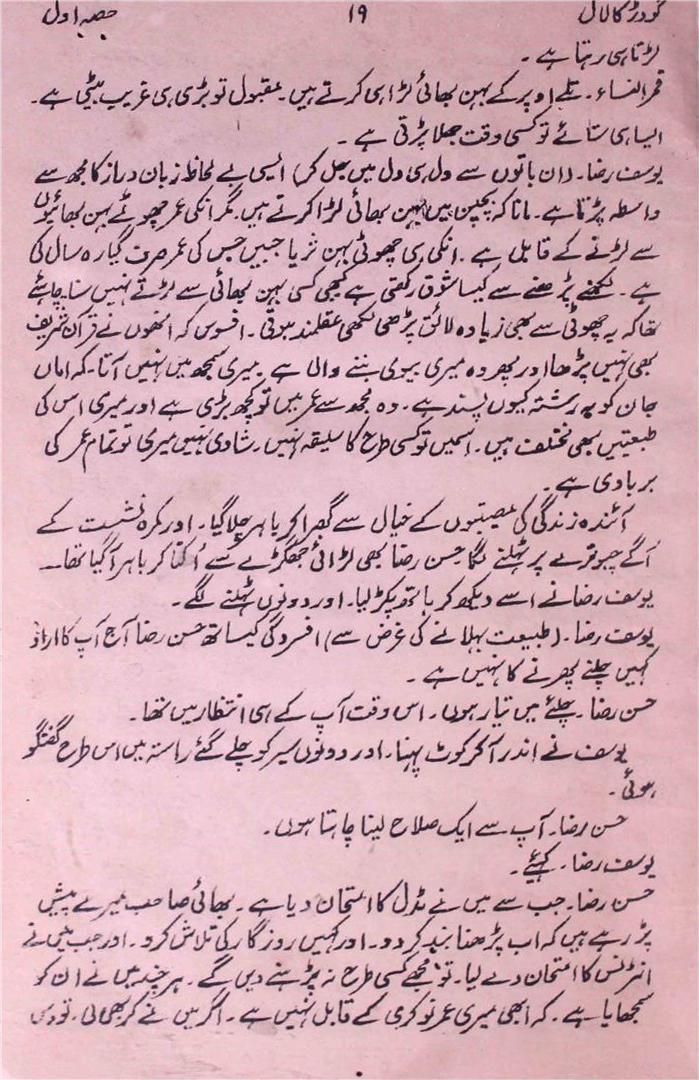 گودڑ کا لال ۱۹ حصہ اول
لڑتا ہی رہتا ہے ۔
قمر النساء ۔ تلے اوپر کے بہن بھائی لڑا ہی کرتے ہیں ۔ مقبول تو بڑی ہی غریب بیٹی ہے ۔
ایسا ہی ستائے تو کسی وقت جھلا پڑتی ہے ۔
یوسف رضا ۔ (ان باتوں سے دل ہی دل میں جل کر) ایسی بے لحاظ زبان دراز کا مجھ سے
واسطہ پڑتا ہے ۔ مانا کہ بچپن میں بہن بھائی لڑا کرتے ہیں ۔ مگر انکی عمر چھوٹے بہن بھائیوں
سے لڑنے کے قابل ہے ۔ انکی ہی چھوٹی بہن ثریا جبیں جس کی عمر صرف گیارہ سال کی
ہے ۔ لکھنے پڑھنے سے کیسا شوق رکھتی ہے کبھی کسی بہن بھائی سے لڑتے نہیں سنا ۔ چاہئے
تھا کہ یہ چھوٹی سے بھی زیادہ لائق پڑھی لکھی عقلمند ہوتی ۔ افسوس کہ انھوں نے قرآن شریف
بھی نہیں پڑھا اور پھر وہ میری بیوی بننے والی ہے ۔ میری سمجھ میں نہیں آتا ۔ کہ اماں
جان کو یہ رشتہ کیوں پسند ہے ۔ وہ مجھ سے عمر میں تو کچھ بڑی ہے اور میری اس کی
طبعیتیں بھی مختلف ہیں ۔ اسمیں تو کسی طرح کا سلیقہ نہیں ۔ شادی نہیں میری تو تمام عمر کی
بربادی ہے ۔
آئندہ زندگی کی مصیبتوں کے خیال سے گھبرا کر باہر چلا گیا ۔ اور کمرہ نشست کے
آگے چبوترے پر ٹہلنے لگا حسن رضا بھی لڑائی جھگڑے سے اُکتا کر باہر آ گیا تھا ۔
یوسف رضا نے اسے دیکھ کر ہاتھ پکڑ لیا ۔ اور دونوں ٹہلنے لگے ۔
یوسف رضا ۔ (طبیعت بہلانے کی غرض سے) افسردگی کیساتھ حسن رضا آج آپ کا ارادہ
کہیں چلنے پھرنے کا نہیں ہے ۔
حسن رضا ۔ چلئے میں تیار ہوں ۔ اس وقت آپ کے ہی انتظار میں تھا ۔
یوسف نے اندر آ کر کوٹ پہنا ۔ اور دونوں سیر کو چلے گئے راستہ میں اس طرح گفتگو
ہوئی ۔
حسن رضا ۔ آپ سے ایک صلاح لینا چاہتا ہوں ۔
یوسف رضا ۔ کہئے ۔
حسن رضا ۔ جب سے میں نے مڈل کا امتحان دیا ہے ۔ بھائی صاحب میرے پیش
پڑ رہے ہیں کہ اب پڑھنا بند کر دو ۔ اور کہیں روزگار کی تلاش کرو ۔ اور جب میں نے
انٹرنس کا امتحان دے لیا ۔ تو مجھے کسی طرح نہ پڑہنے دیں گے ۔ ہر چند میں نے ان کو
سمجھایا ہے ۔ کہ ابھی میری عمر نوکری کے قابل نہیں ہے ۔ اگر میں نے کر بھی لی ۔ تو دس